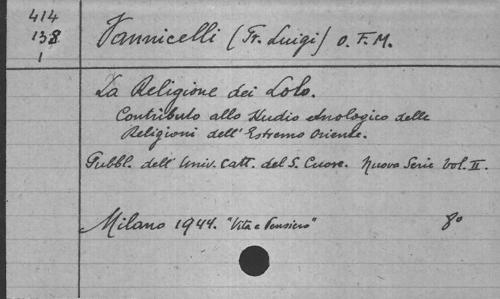 414
138
1
Vannicelli (Fr. Luigi) O. F. M.
La Religione dei Lolo.
Contributo allo studio etnologico delle
Religioni dell'Estremo Oriente.
Pubbl. dell'Univ. Catt. del S. Cuore. Nuova Serie Vol. II.
Milano 1944. "Vita e Pensiero" 8°